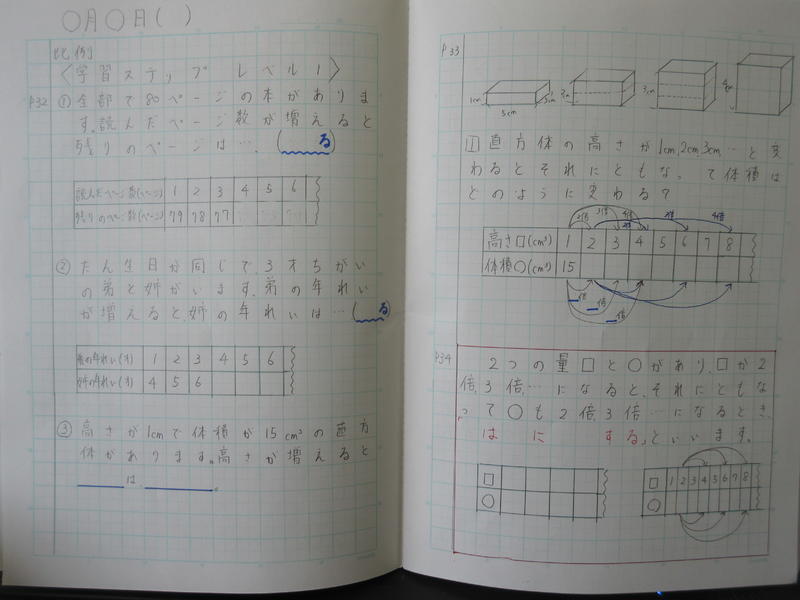 ○月○日( )
比例
〈学習ステップ レベル1〉
P32 ①全部で80ページの本がありま
す。読んだページ数が増えると
残りのページは…。( る)
読んだページ数(ページ) 1 2 3 4 5 6
残りのページ数(ページ) 79 78 77
②たん生日が同じで、3才ちがい
の弟と姉がいます。弟の年れい
が増えると、姉の年れいは…( る)
弟の年れい(才) 1 2 3 4 5 6
姉の年れい(才) 4 5 6
③高さが1cmで体積が15cm³の直方
体があります。高さが増えると
は 。
P33
1cm 5cm 3cm
1 直方体の高さが1cm,2cm,3cm…と変
わるとそれにともなって体積は
どのように変わる?
2倍 3倍 4倍 2倍 3倍 4倍
高さ□(cm³) 1 2 3 4 5 6 7 8
体積○(cm³) 15
倍 倍 倍
P34 2つの量□と○があり、□が2
倍、3倍…になると、それにともな
って○も2倍、3倍…になるとき、
は に する」といいます。
□ □ 1 2 3 4 5 6 7 8
○ ○